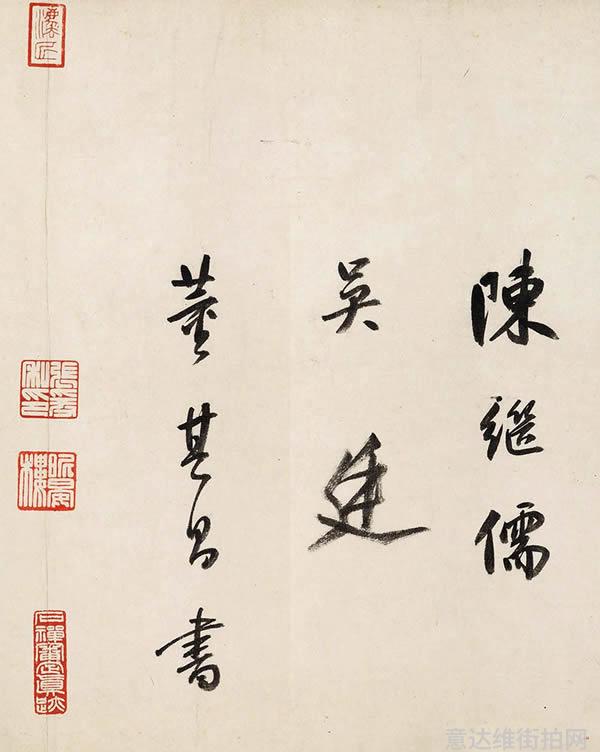 陳繼儒
吳廷
董其昌書
意达维街拍网